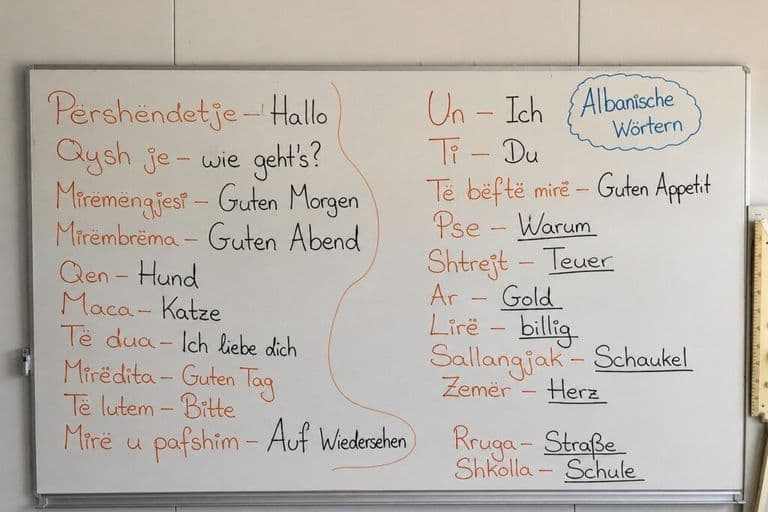 Përshëndetje – Hallo
Qysh je – wie geht's?
Mirëmëngjesi – Guten Morgen
Mirëmbrëma – Guten Abend
Qen – Hund
Maca – Katze
Të dua – Ich liebe dich
Mirëdita – Guten Tag
Të lutem – Bitte
Mirë u pafshim – Auf Wiedersehen
Albanische
Wörtern
Un – Ich
Ti – Du
Të bëftë mirë – Guten Appetit
Pse – Warum
Shtrejt – Teuer
Ar – Gold
Lirë – billig
Sallangjak – Schaukel
Zemër – Herz
Rruga – Straße
Shkolla – Schule